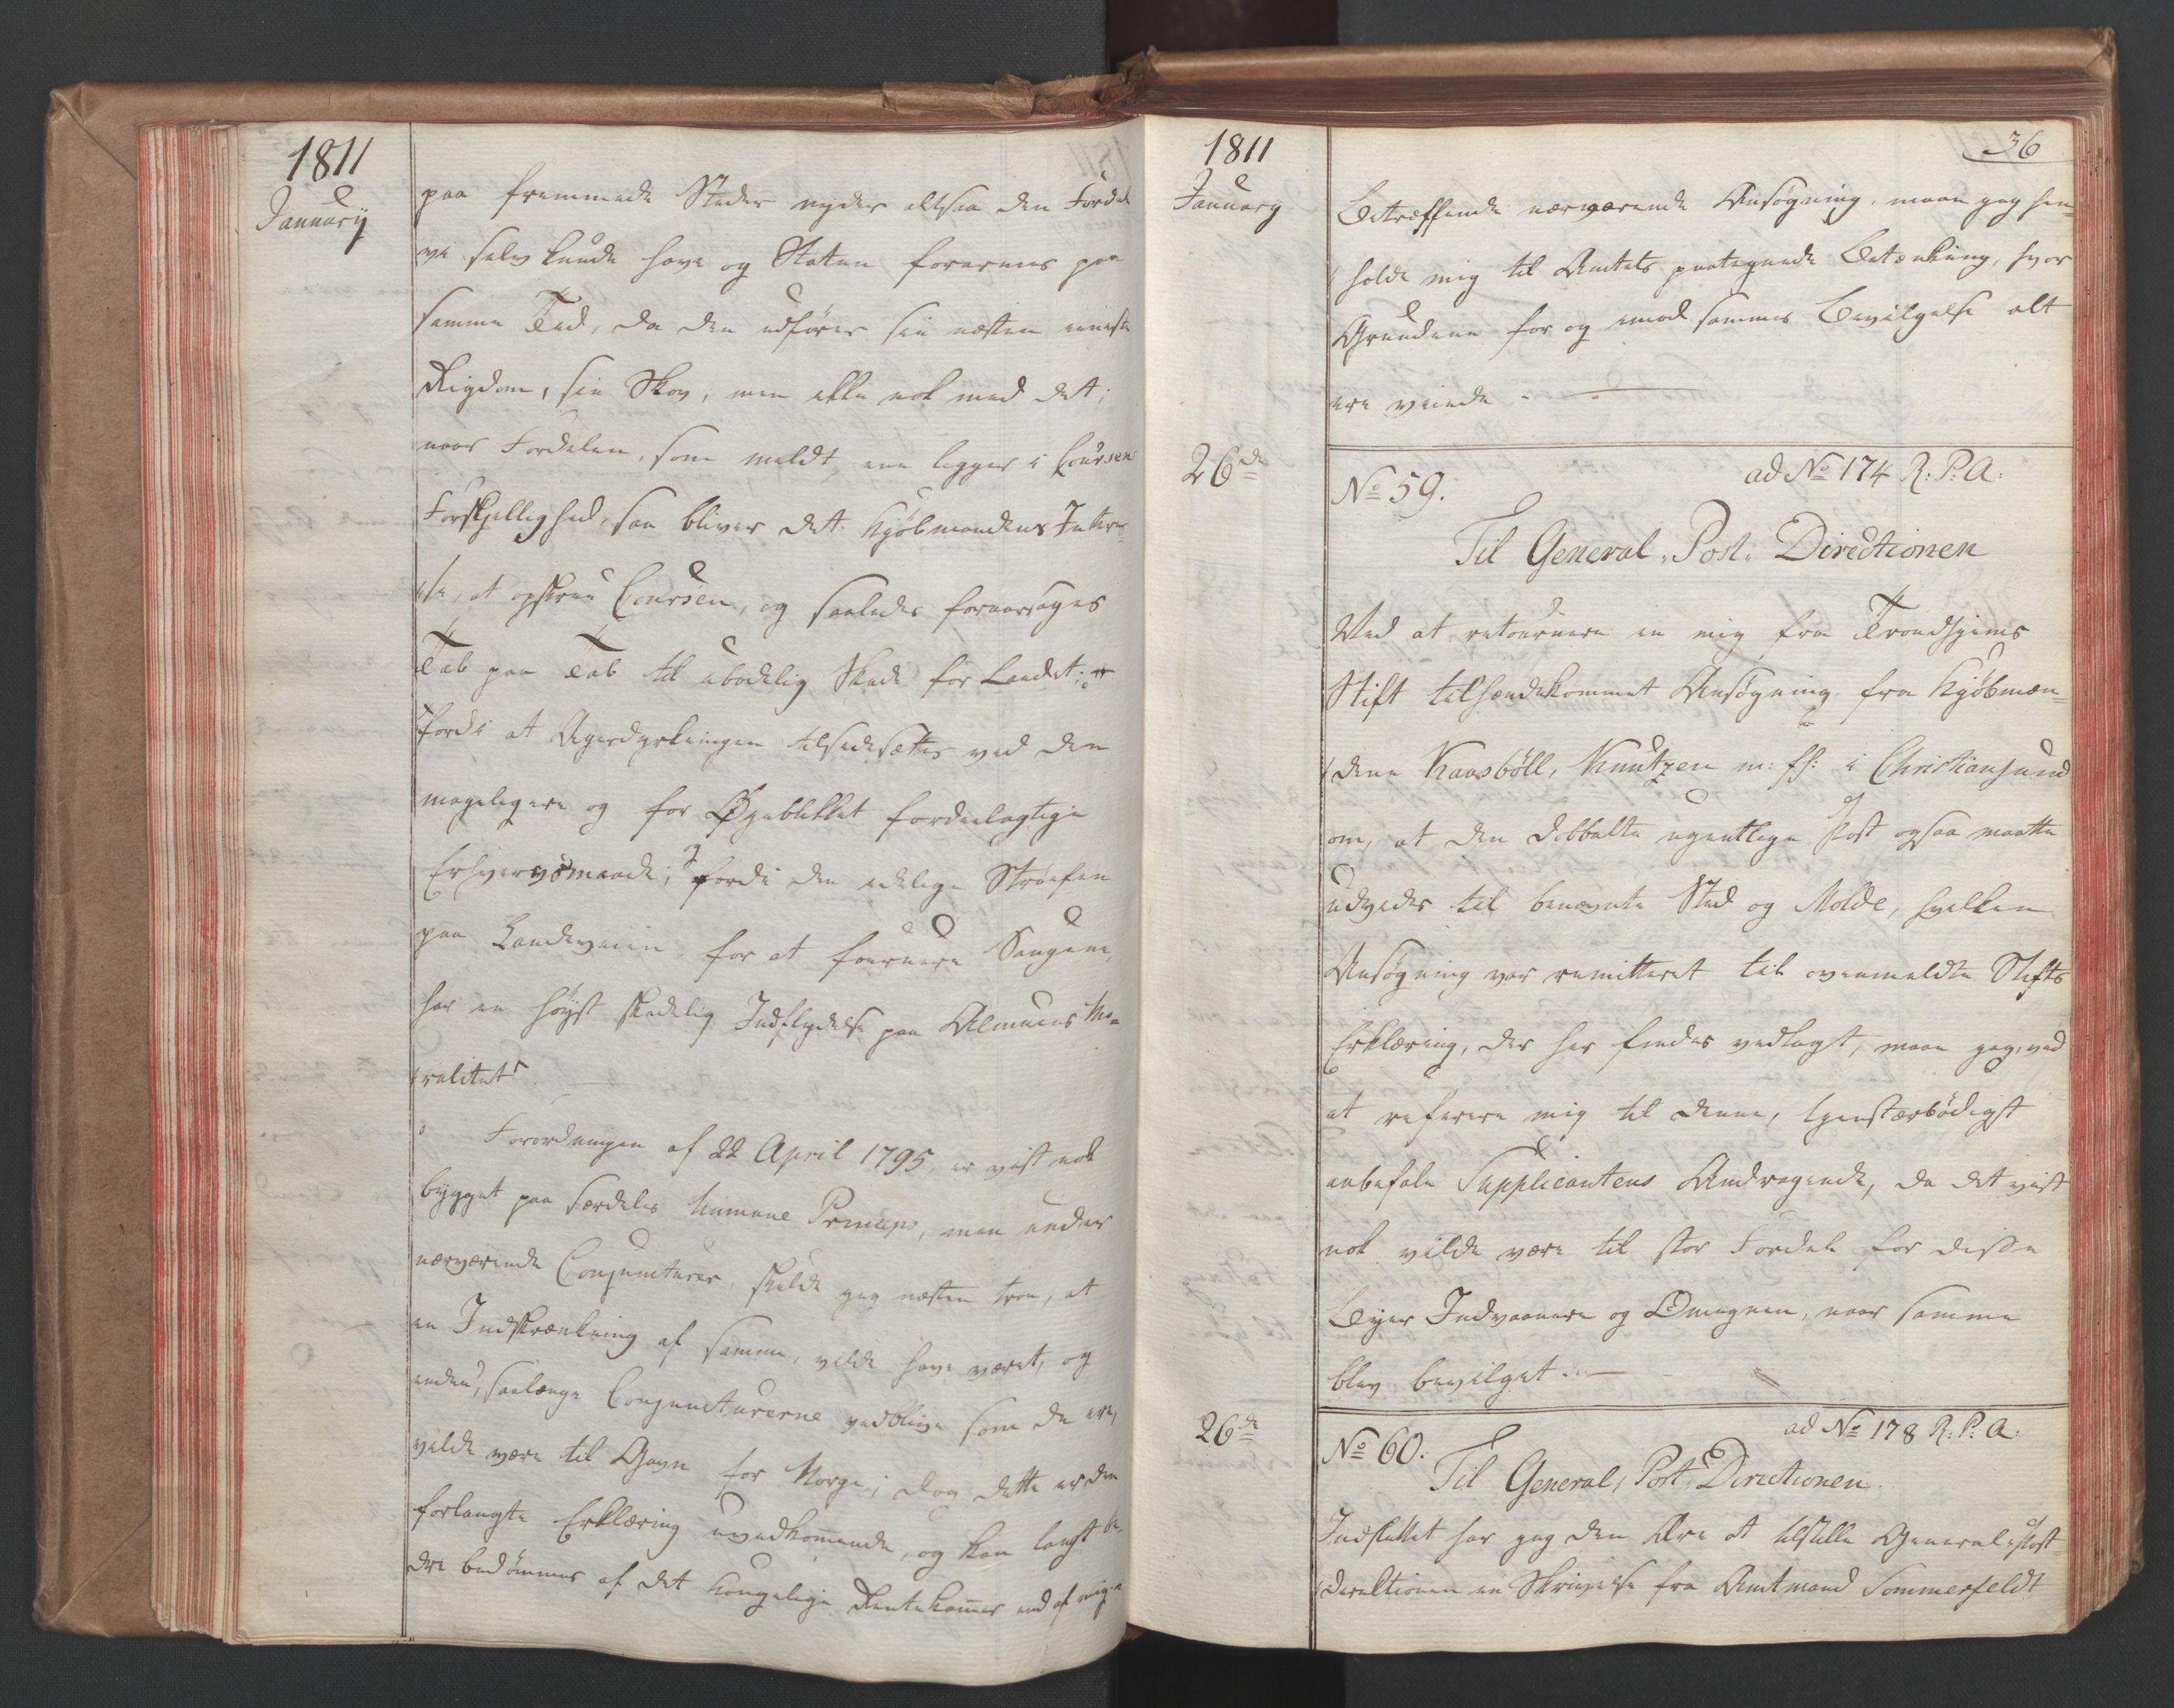 1811
January
paa fremmede Steder nyder altsaa den Fordel
vi selv kunde have og Staten forarmes paa
samme Tid, da den udfører sin næsten eeneste
Rigdom, sin Skov, men ikke nok med det;
naar Fordelen, som meldt, ene ligger i Coursens
Forskjellighed, saa bliver det Kjøbmandens Inter-
esse, at opskrue Coursen, og saaledes foraarsages
Tab paa Tab til ubodelig Skade for Landet;
fordi at Agerdyrkningen tilsidesættes ved den
mageligere og for Øyeblikket fordeelagtige
Erhvervsmaade; fordi den idelige Streifen
paa Landeveien for at fournere Saugene,
har en høyst skadelig Indflydelse paa Almuens Mo-
ralitet.
Forordningen af 22 April 1795, er vist nok
bygget paa særdeles humane Princip, men under
nærværende Conjuncturer, skulde jeg næsten troe, at
en Indskrænkning af samme, vilde have været, og
endnu, saalænge Conjuncturerne vedblive som de ere,
vilde være til Gavn for Norge; dog dette er den
forlangte Erklæring uvedkommende, og kan langt be-
dre bedømmes af det Kongelige Rentekammer end af mig.
1811
January
36
Betræffende nærværende Ansøgning, maae jeg hen-
holde mig til Amtets paategnede Betænkning, hvor
Grundene for og imod sammes Bevilgelse alt
ere veiede.
26de
No 59.
ad No 174 R. P. A.
Til General-Post-Directionen
Ved at retournere en mig fra Trondhjems
Stift tilhændekommet Ansøgning fra Kjøbmæn-
dene Kaasbøll, Knudtzen m: fl: i Christiansund
om, at den dobbelte ugentlige Post ogsaa maatte
udvides til benævnte Sted og Molde, hvilken
Ansøgning var remitteret til ovenmeldte Stifts
Erklæring, der her findes vedlagt, maae jeg, ved
at referere mig til denne, tjenstærbødigst
anbefale Supplicantens Andragende, da det vist
nok vilde være til stor Fordeel for disse
Byers Indvaanere og Omegnen, naar samme
blev bevilget.
26de
No 60.
ad No 178 R. P. A.
Til General-Post-Directionen
Indsluttet har jeg den Ære at tilstille General-Post-
direktionen en Skrivelse fra Amtmand Sommerfeldt